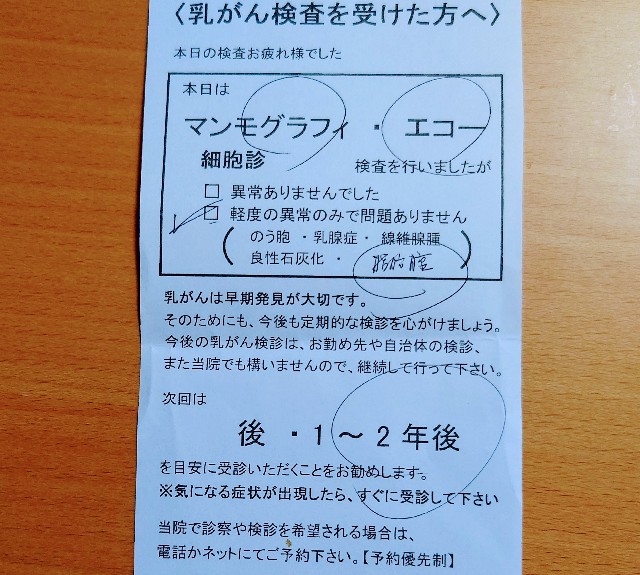 〈乳がん検査を受けた方へ〉
本日の検査お疲れ様でした
本日は
マンモグラフィ ・ エコー
細胞診 検査を行いましたが
□ 異常ありませんでした
□ 軽度の異常のみで問題ありません
( のう胞 ・ 乳腺症 ・ 線維腺腫
良性石灰化 ・ 脂肪腫 )
乳がんは早期発見が大切です。
そのためにも、今後も定期的な検診を心がけましょう。
今後の乳がん検診は、お勤め先や自治体の検診、
また当院でも構いませんので、継続して行って下さい。
次回は
後 ・ 1 ～ 2 年後
を目安に受診いただくことをお勧めします。
※気になる症状が出現したら、すぐに受診して下さい
当院で診察や検診を希望される場合は、
電話かネットにてご予約下さい。【予約優先制】